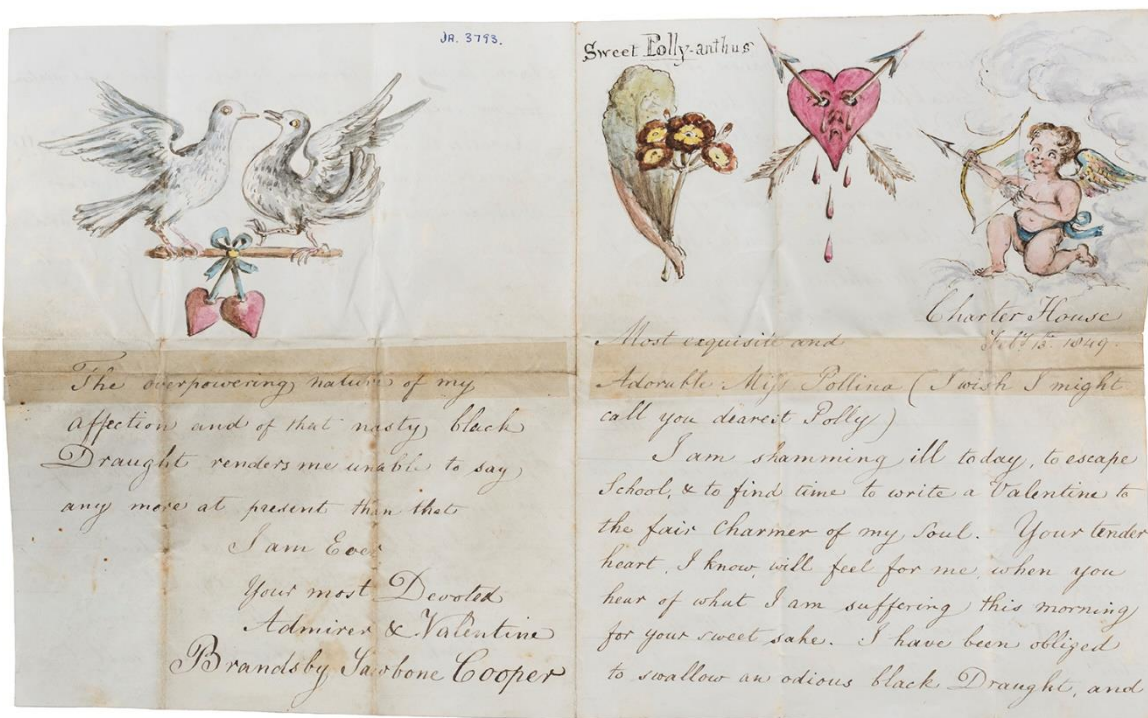 JA. 3793.
The overpowering nature of my
affection and of that nasty black
Draught renders me unable to say
any more at present than that
I am Ever
Your most Devoted
Admirer & Valentine
Brandsby Sawbone Cooper
Sweet Polly-anthus
Charter House
Feby 13th 1849.
Most exquisite and
Adorable Miss Pollina (I wish I might
call you dearest Polly)
I am shamming ill today, to escape
School, & to find time to write a Valentine to
the fair charmer of my soul. Your tender
heart, I know, will feel for me, when you
hear of what I am suffering this morning
for your sweet sake. I have been obliged
to swallow an odious black Draught, and